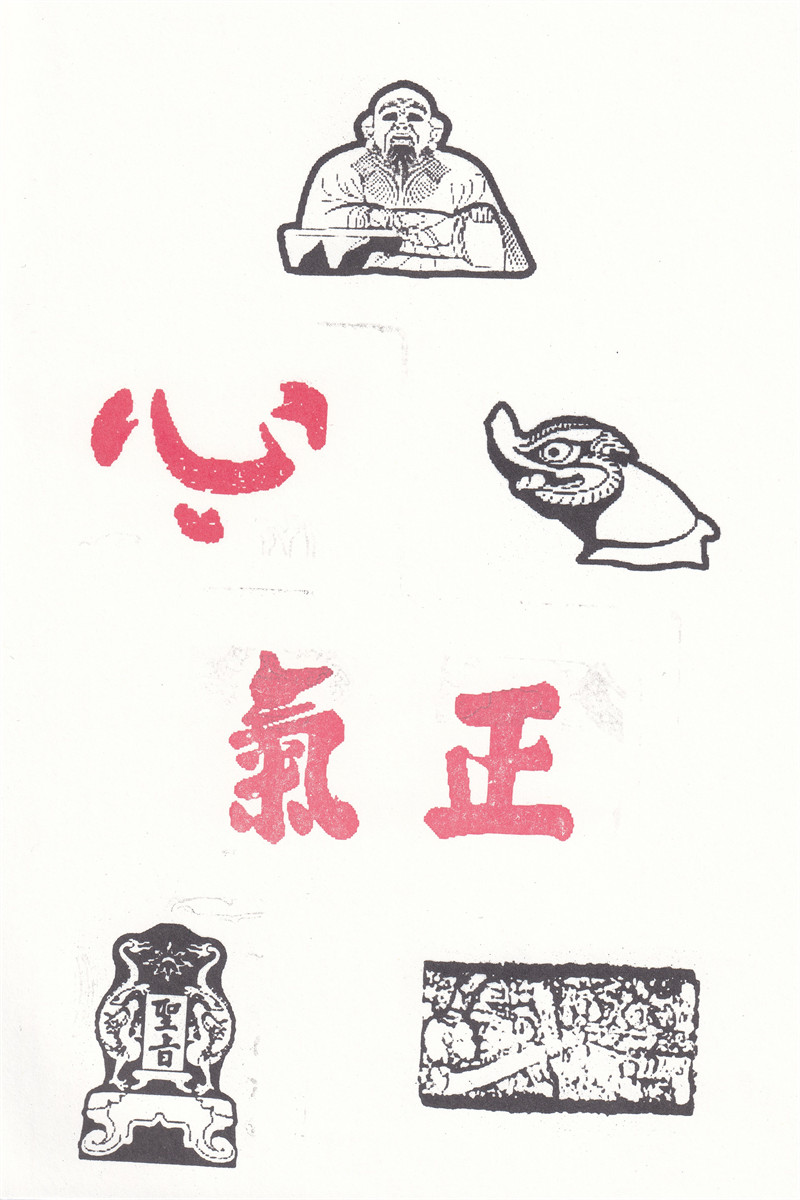 心
正氣
聖旨